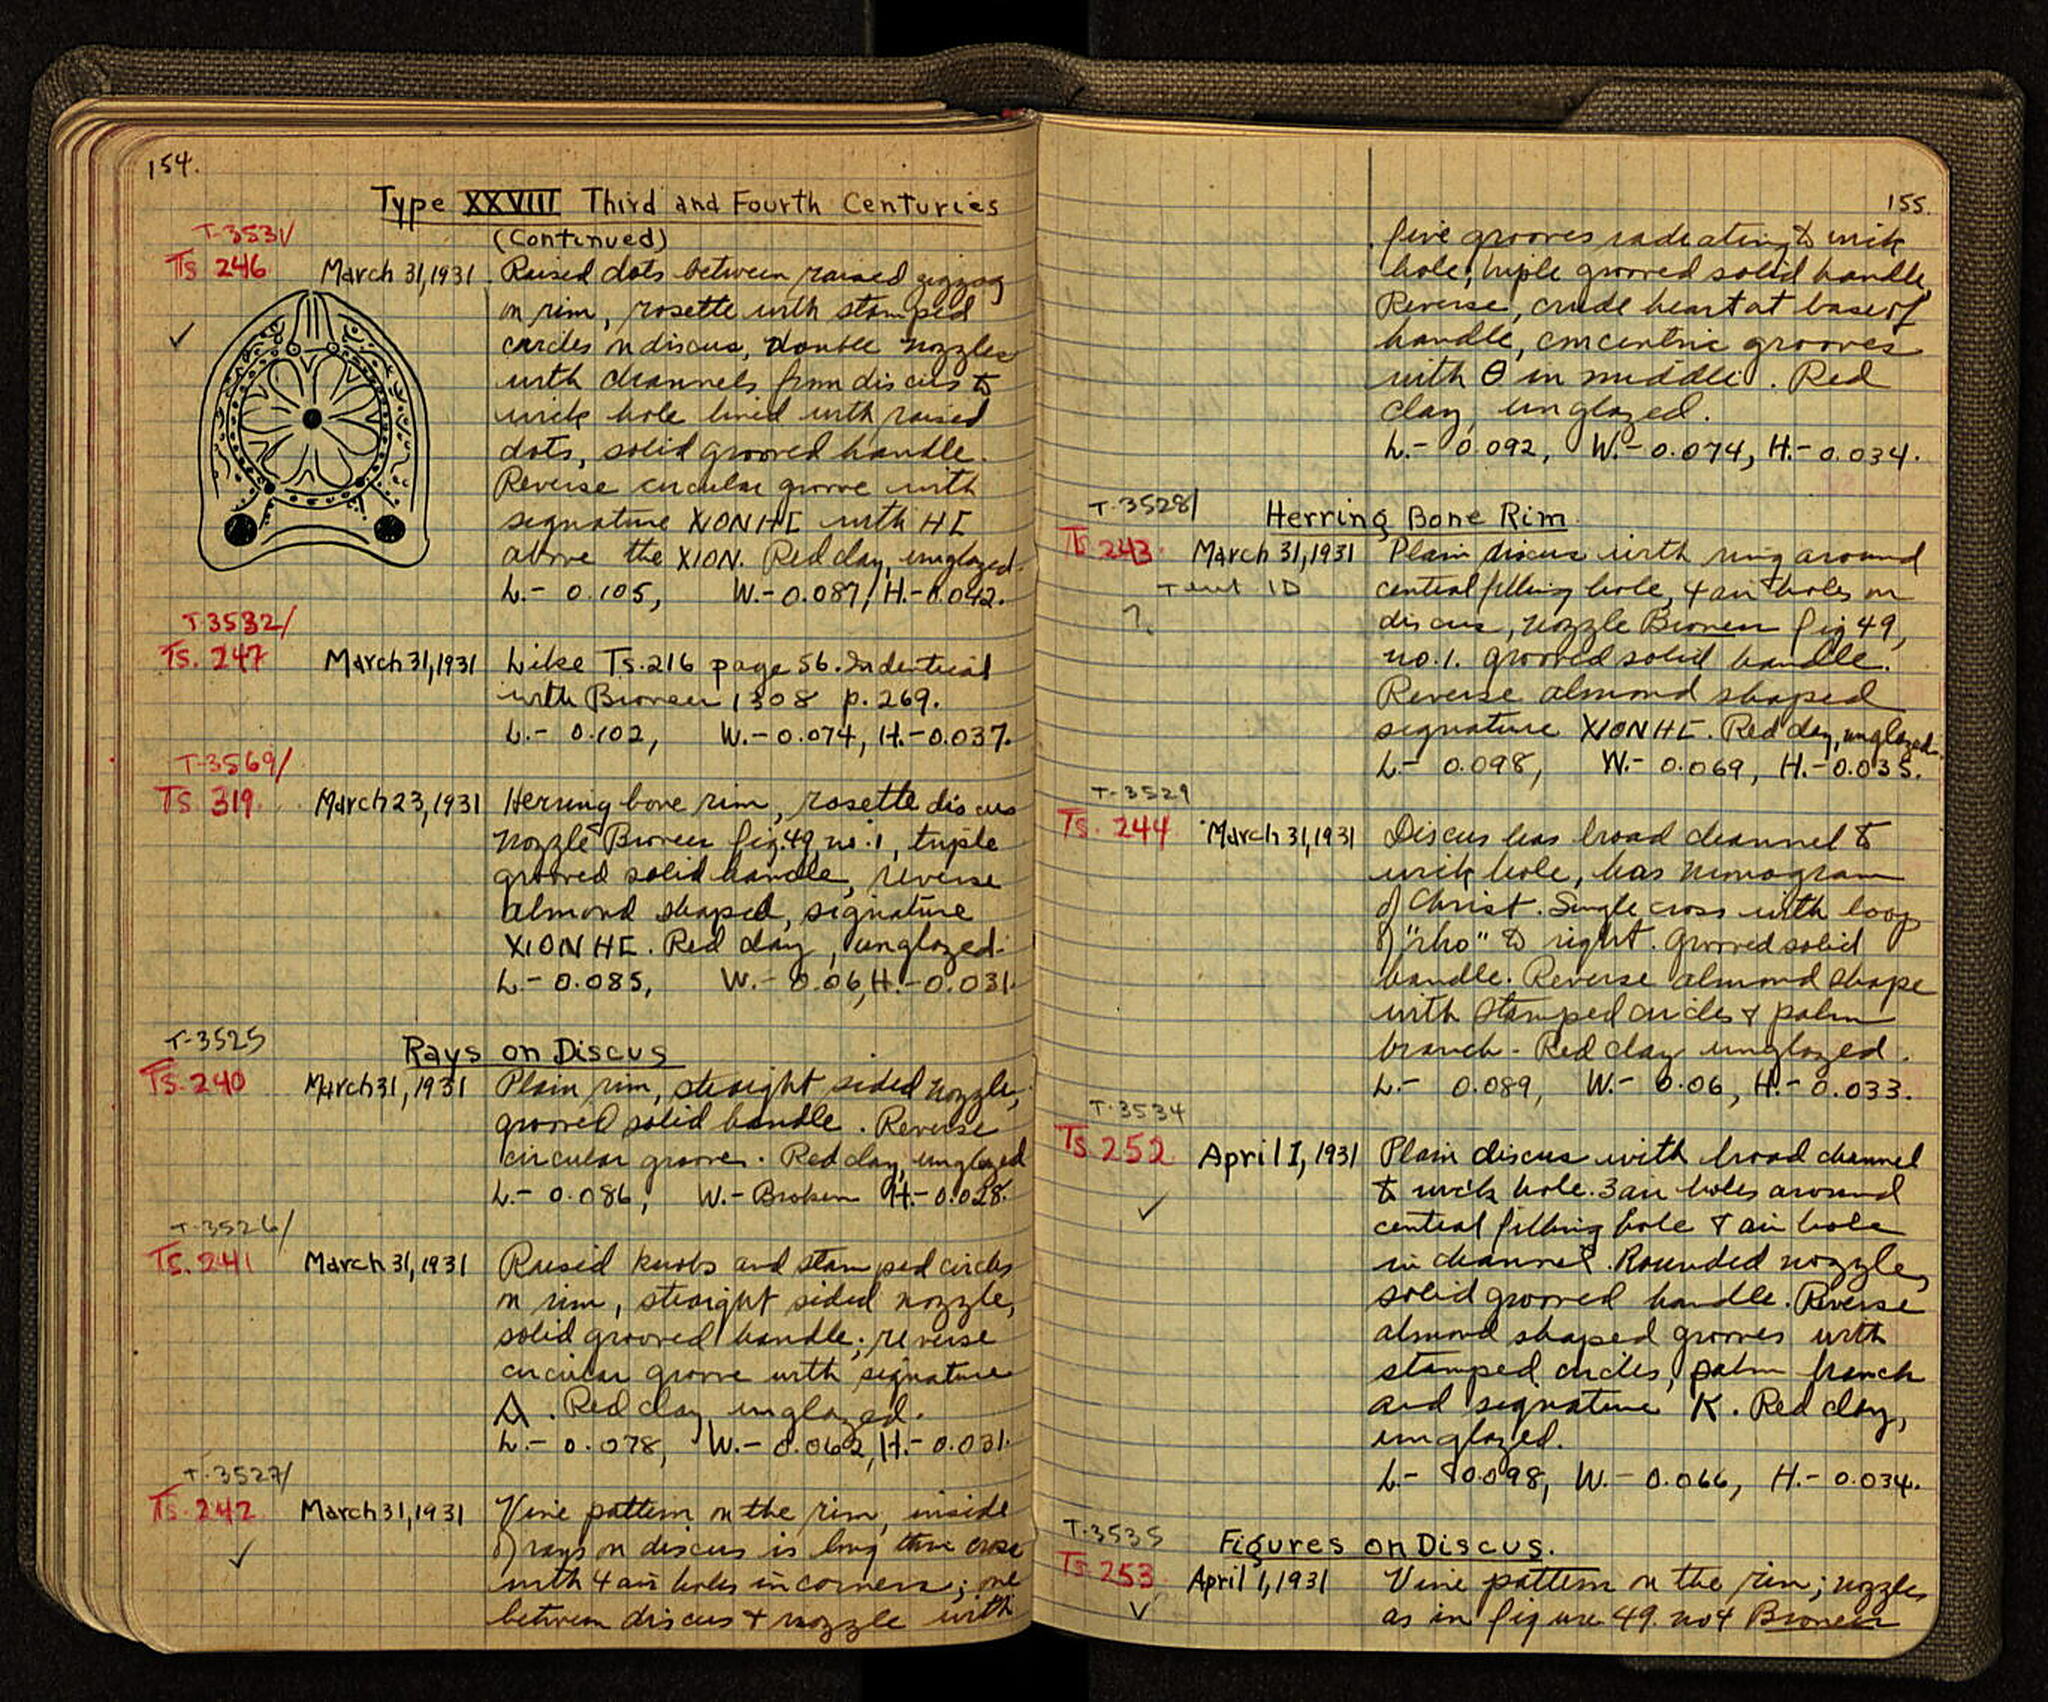 154.
Type XXVIII Third and Fourth Centuries
(Continued)
T-3531/
Ts 246 March 31, 1931 Raised dots between raised zigzag
on rim, rosette with stamped
circles on discus, double nozzles
with channels from discus to
wick hole lined with raised
dots, solid grooved handle.
Reverse circular groove with
signature XIONHC with HC
above the XION. Red clay, unglazed.
L.- 0.105, W.- 0.087, H.- 0.042.
T3532/
Ts. 247 March 31, 1931 Like Ts. 216 page 56. Indentical
with Broneer 1308 p. 269.
L.- 0.102, W.- 0.074, H.- 0.037.
T-3569/
Ts 319. March 23, 1931 Herring bone rim, rosette discus
nozzle Broneer fig. 49 no. 1, triple
grooved solid handle, reverse
almond shaped, signature
XIONHC. Red clay, unglazed.
L- 0.085, W.- 0.06, H.- 0.031.
T-3525
Rays on Discus
Ts. 240 March 31, 1931 Plain rim, straight sided nozzle,
grooved solid handle. Reverse
circular grooves. Red clay, unglazed
L.- 0.086, W.- Broken H.- 0.028.
T-3526/
Ts. 241 March 31, 1931 Raised knobs and stamped circles
on rim, straight sided nozzle,
solid grooved handle; reverse
circular groove with signature
A. Red clay, unglazed.
L.- 0.078, W.- 0.062, H.- 0.031.
T-3527/
Ts. 242 March 31, 1931 Vine pattern on the rim, inside
of rays on discus is long thin cross
with 4 air holes in corners; one
between discus & nozzle with
155.
five grooves radiating to wick
hole; triple grooved solid handle.
Reverse, crude heart at base of
handle, concentric grooves
with Θ in middle. Red
clay, unglazed.
L.- 0.092, W.- 0.074, H.- 0.034.
T-3528/
Herring Bone Rim.
Ts. 243. March 31, 1931 Plain discus with ring around
central filling hole, 4 air holes on
discus, nozzle Broneer fig 49,
no. 1. grooved solid handle.
Reverse almond shaped
signature XIONHC. Red clay, unglazed.
L- 0.098, W.- 0.069, H.- 0.035.
?
T-3529
Ts. 244 March 31, 1931 Discus has broad channel to
wick hole, has monogram
of Christ. Single cross with loop
of "rho" to right. Grooved solid
handle. Reverse almond shape
with stamped circles & palm
branch - Red clay unglazed.
L- 0.089, W.- 0.06, H.- 0.033.
T-3534
Ts. 252 April 1, 1931 Plain discus with broad channel
to wick hole. 3 air holes around
central filling hole & air hole
in channel. Rounded nozzle,
solid grooved handle. Reverse
almond shaped grooves with
stamped circles, palm branch
and signature K. Red clay,
unglazed.
L- 0.098, W.- 0.066, H.- 0.034.
T-3535
Figures on Discus.
Ts. 253 April 1, 1931 Vine pattern on the rim; nozzles
as in figure 49. no 4 Broneer